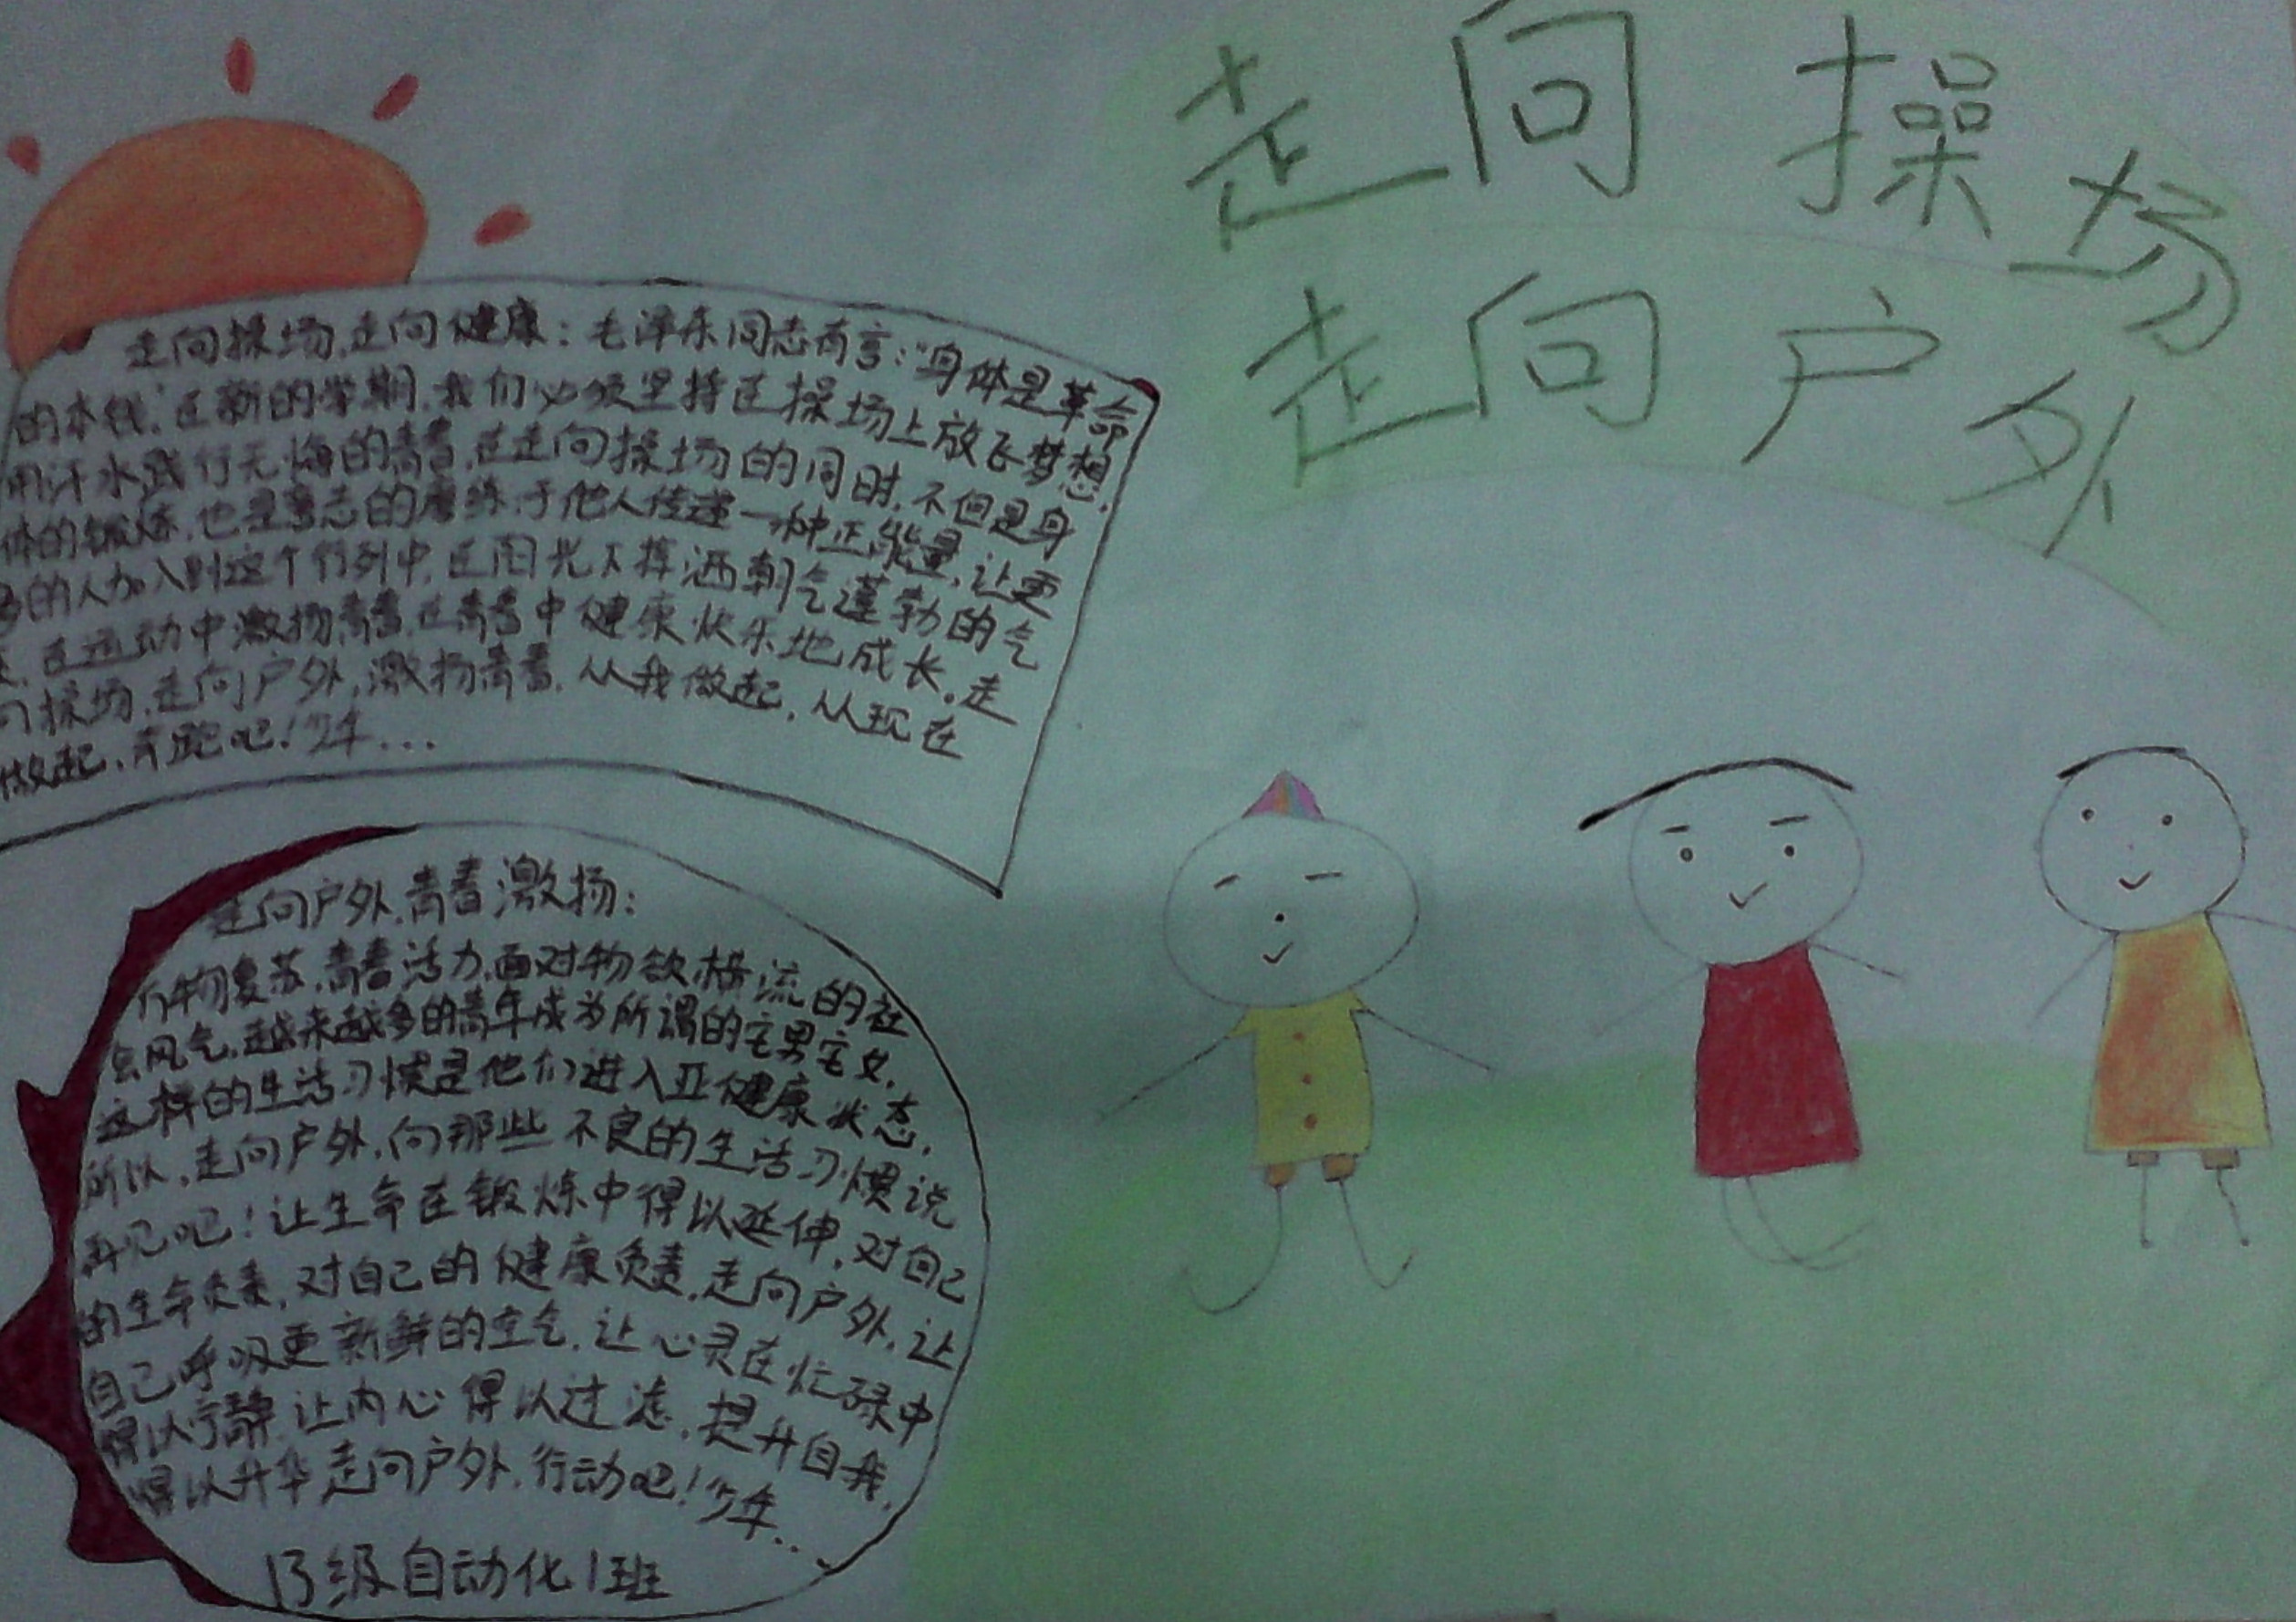 走向操场
走向户外
走向操场,走向健康：毛泽东同志有言："身体是革命
的本钱."在新的学期,我们必须坚持在操场上放飞梦想,
用汗水践行无悔的青春,在走向操场的同时,不但是身
体的锻炼,也是意志的磨练,于他人传递一种正能量,让更
多的人加入到这个行列中,在阳光下挥洒朝气蓬勃的气
在运动中激扬青春,在青春中健康快乐地成长。走
向操场,走向户外,激扬青春,从我做起,从现在
做起,奔跑吧！少年...
走向户外,青春激扬：
万物复苏,青春活力,面对物欲横流的社
会风气,越来越多的青年成为所谓的宅男宅女,
这样的生活习惯是他们进入亚健康状态,
所以,走向户外,向那些不良的生活习惯说
再见吧！让生命在锻炼中得以延伸,对自己
的生命负责,对自己的健康负责,走向户外,让
自己呼吸更新鲜的空气,让心灵在忙碌中
得以宁静,让内心得以过滤,提升自我,
得以升华走向户外,行动吧！少年...
13级自动化1班